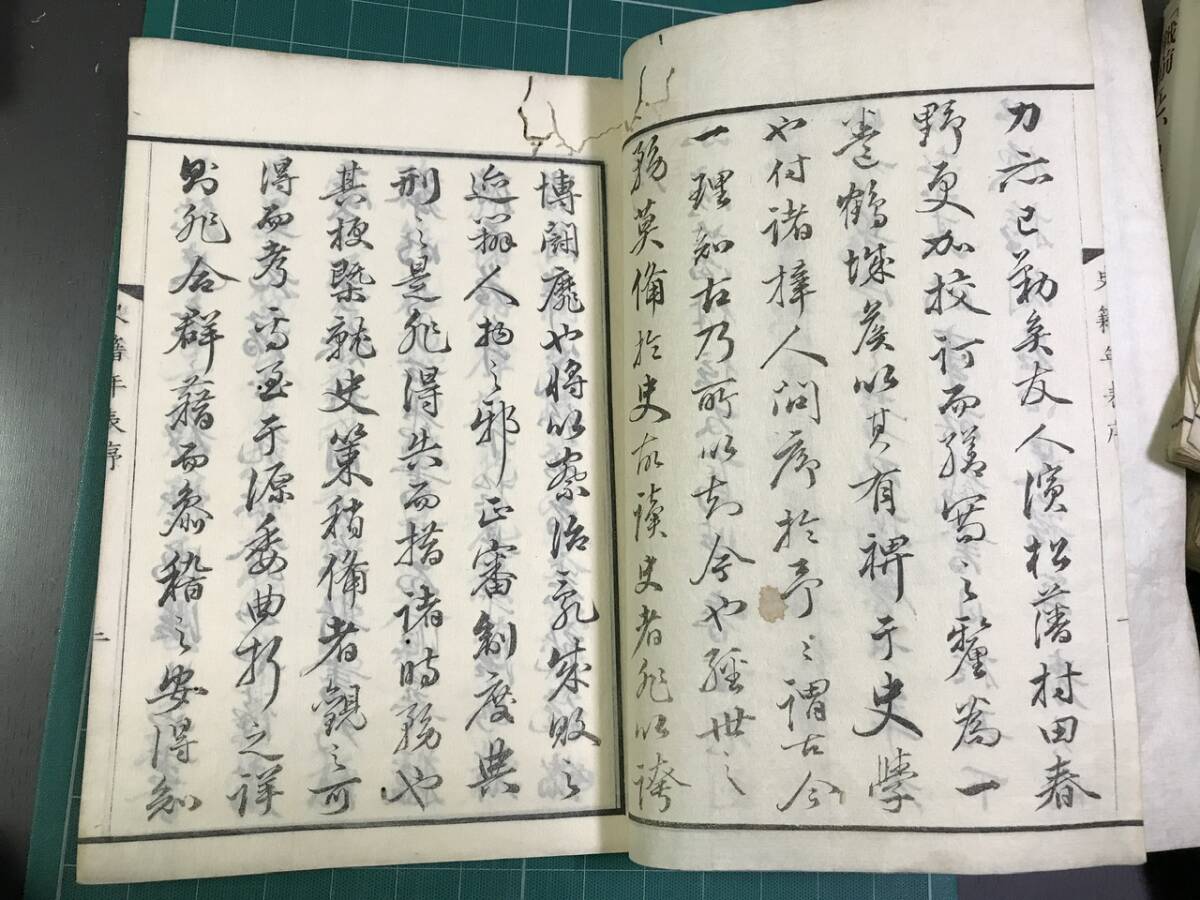 史籍年表序
力亦已勤矣友人濱松藩村田春
野更加挍訂而繕寫之釐為一
卷鶴城侯以其有裨于史學
也付諸梓人問序於予〻謂古今
一理知古乃所以知今也經世之
務莫備於史故讀史者非以誇
博闘靡也將以察治乱成敗之
迹辨人物之邪正審制度典
刑之是非得失而措諸時務也
其梗槩就史策稍備者觀之可
得而考焉至于源委曲折之詳
則非合群籍而參稽之安得知
史籍年表序
二